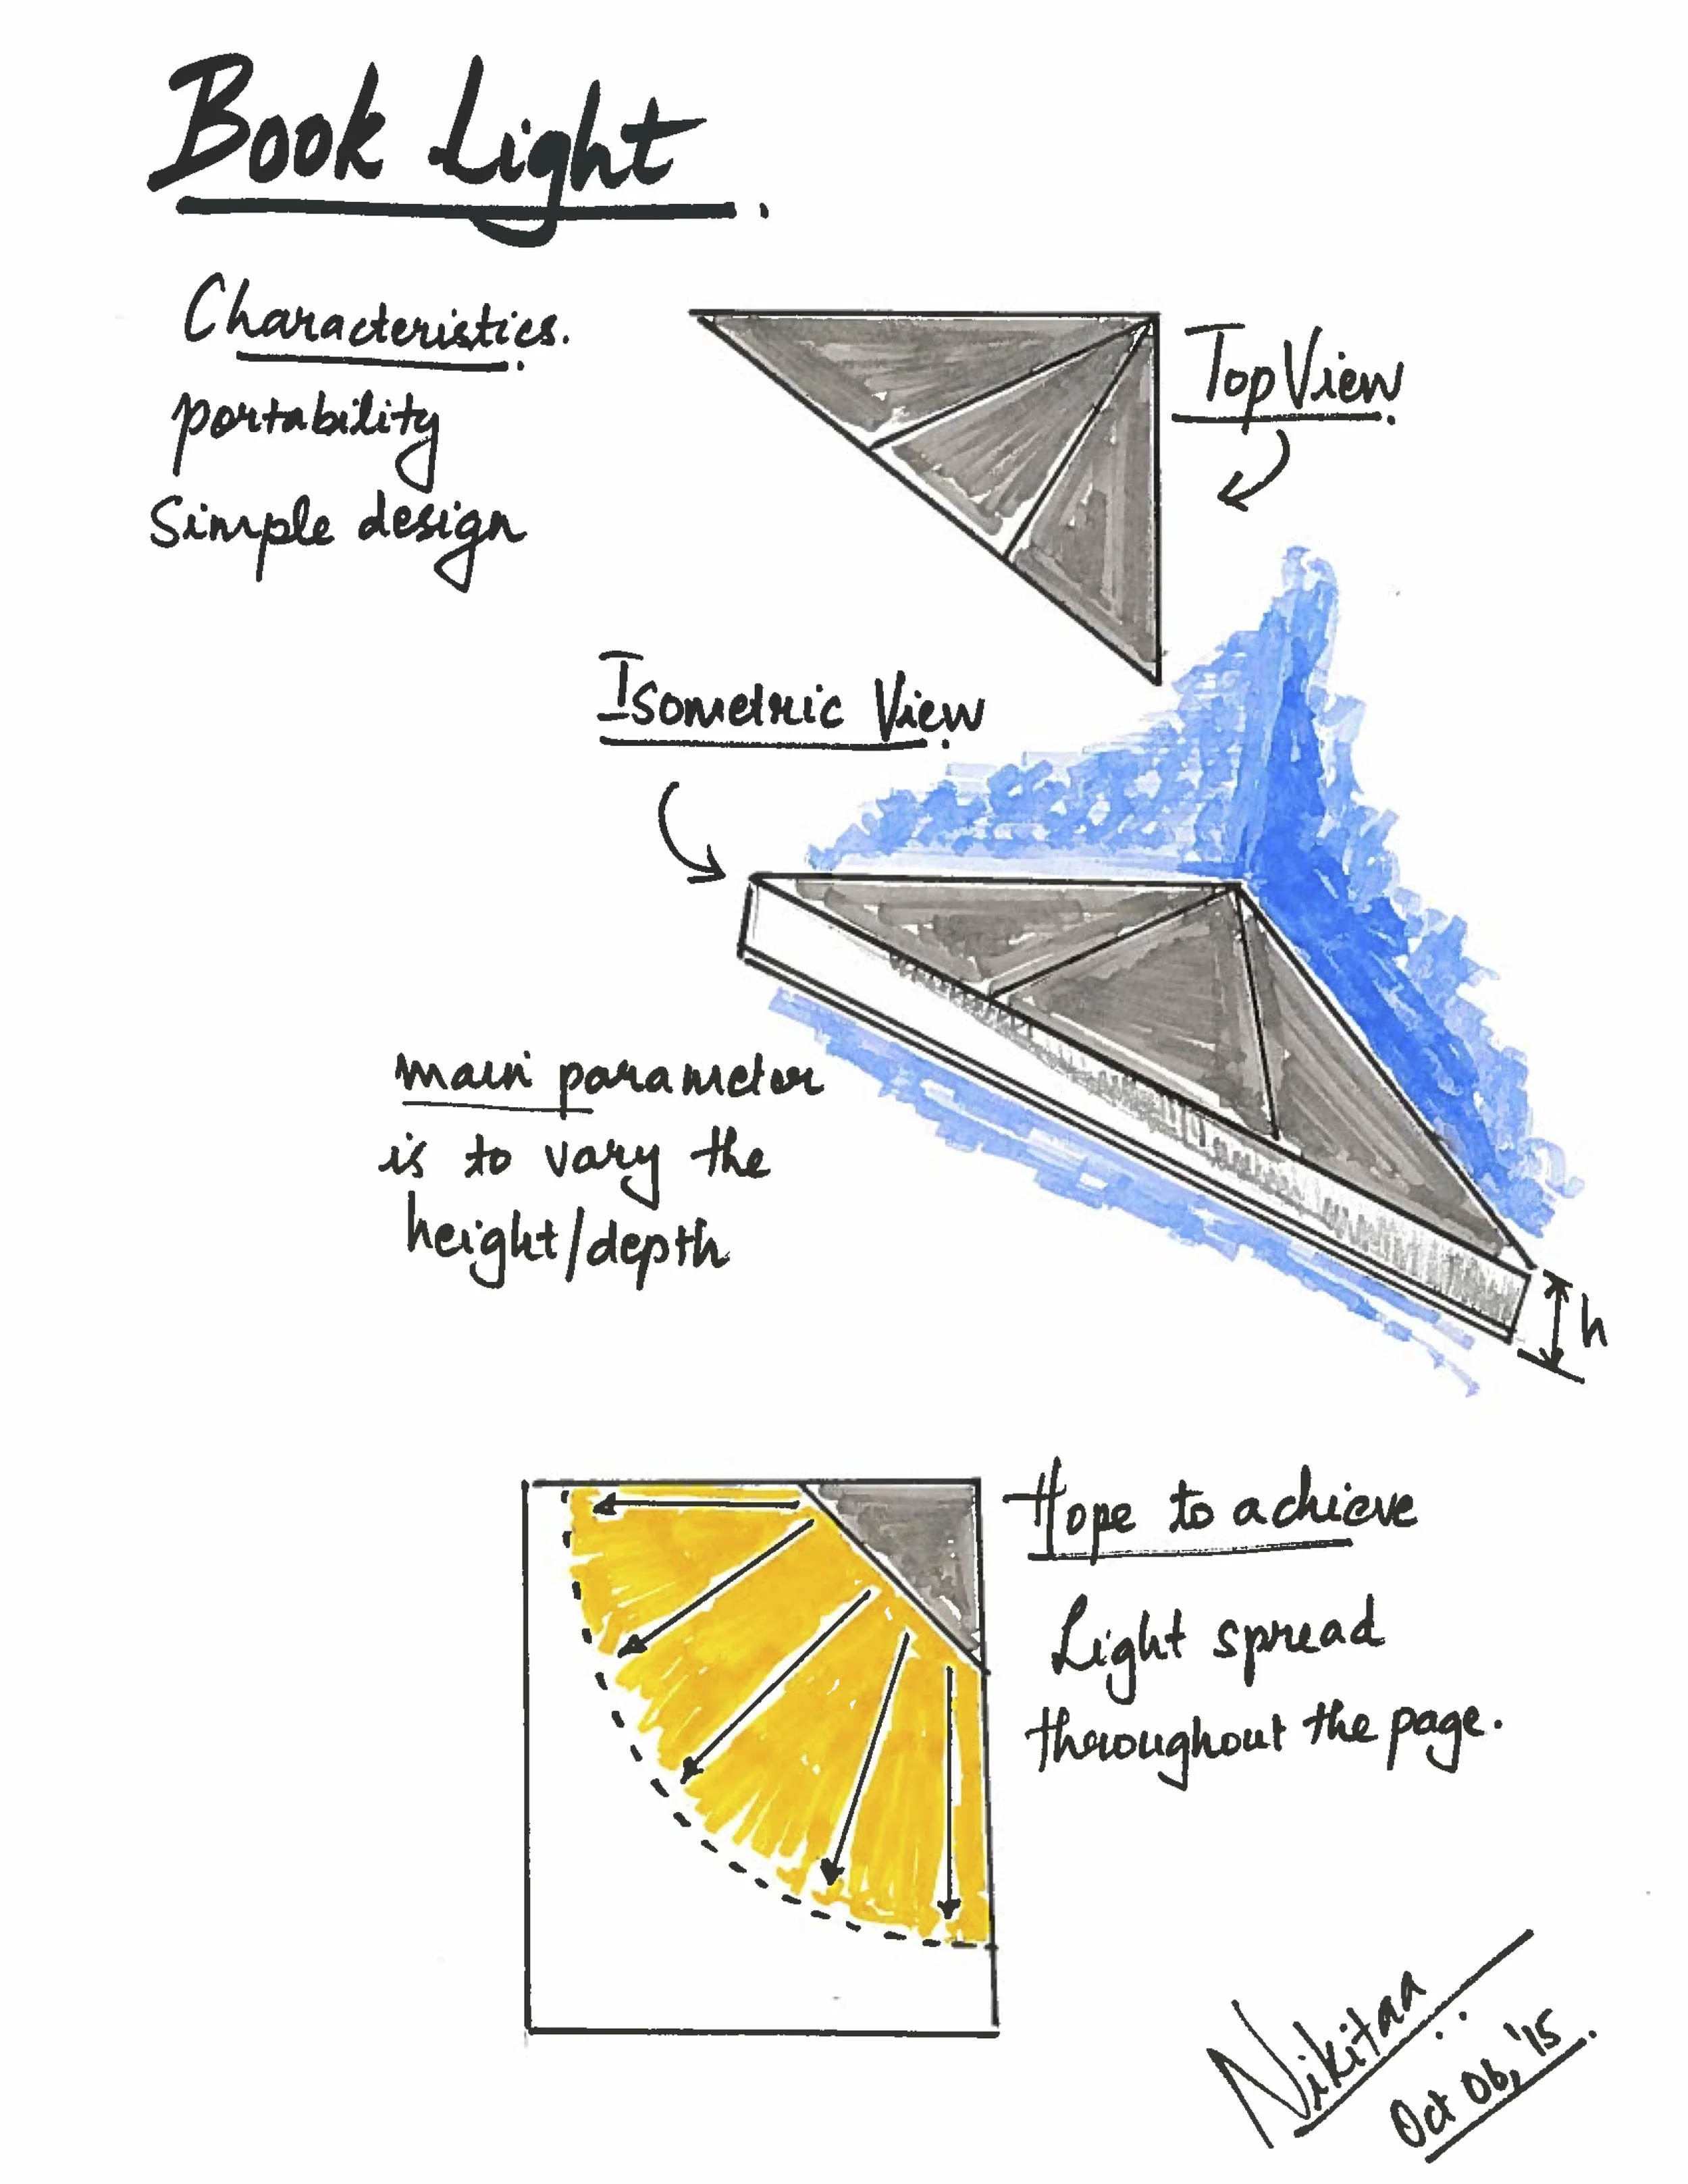 Book Light.
Characteristics.
portability
Simple design
Top View
Isometric View
main parameter
is to vary the
height/depth
h
Hope to achieve
Light spread
throughout the page.
Nikitaa
Oct 06, '15